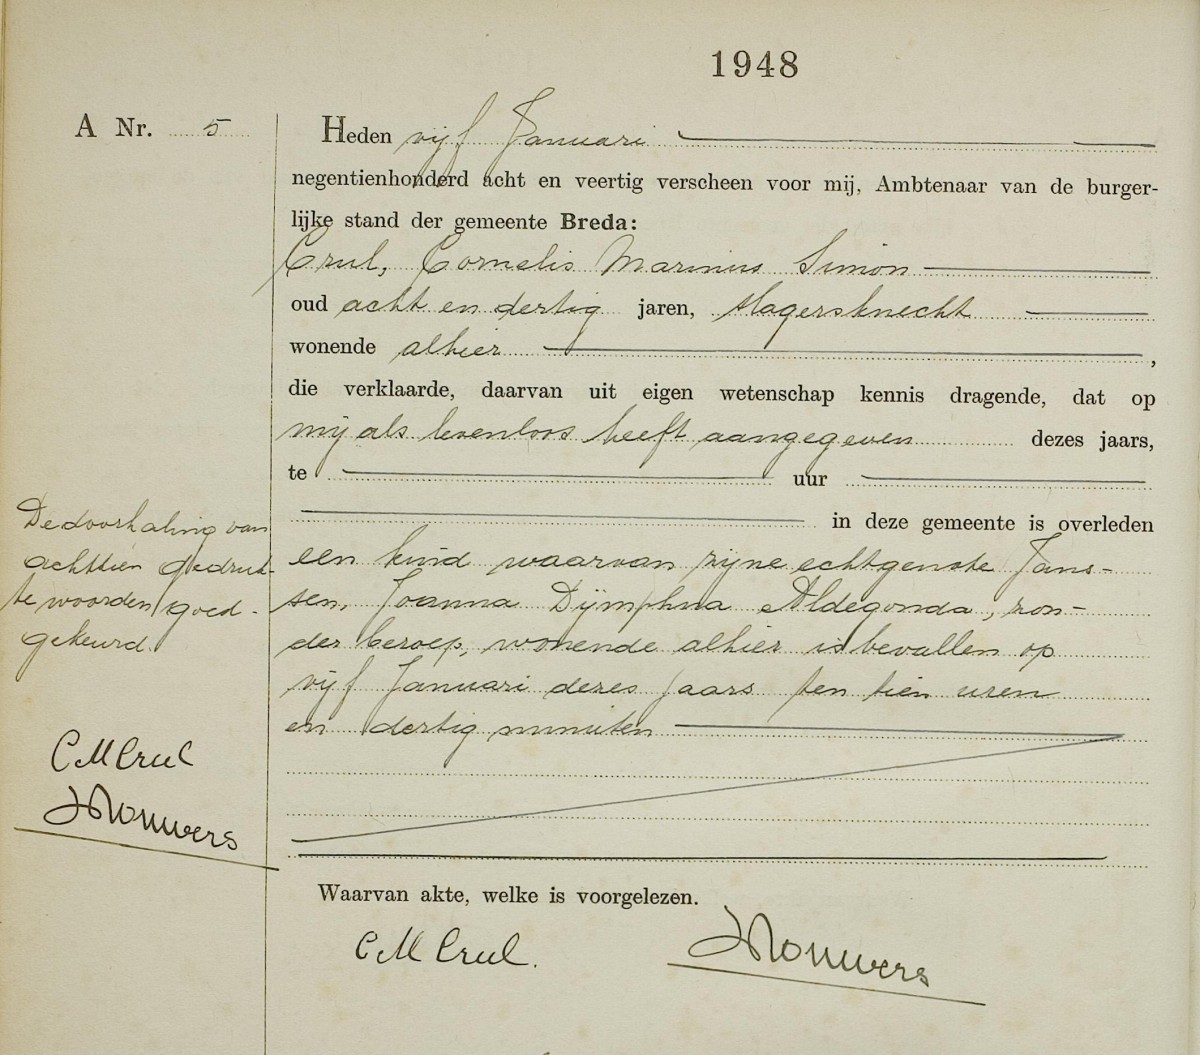 1948
A Nr. 5
Heden vijf Januari
negentienhonderd acht en veertig verscheen voor mij, Ambtenaar van de burger-
lijke stand der gemeente Breda:
Crul, Cornelis Marinus Simon
oud acht en dertig jaren, slagersknecht
wonende alhier,
die verklaarde, daarvan uit eigen wetenschap kennis dragende, dat op
mij als levenloos heeft aangegeven dezes jaars,
te uur
in deze gemeente is overleden
een kind waarvan zijne echtgenote Jans-
sen, Joanna Dijmphna Aldegonda, zon-
der beroep, wonende alhier is bevallen op
vijf Januari dezes jaars ten tien uren
en dertig minuten
De doorhaling van
achttien gedruk-
te woorden goed-
gekeurd.
C M Crul
Waarvan akte, welke is voorgelezen.
C M Crul.